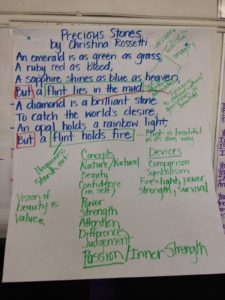 Precious Stones
by Christina Rossetti
An emerald is as green as grass,
A ruby red as blood,
A sapphire shines as blue as heaven,
But a flint lies in the mud.
A diamond is a brilliant stone
To catch the world's desire,
An opal holds a rainbow light,
But a flint holds fire.
is beautiful
in its own way
stands out
Concepts
Nature/Natural
Beauty
Confidence
(in self)
Power
Strength
Attention
Differences
Judgement
Passion/Inner Strength
Devices
Comparison
Symbolism
Fire=light, power
strength, survival
Vision of
beauty is
value